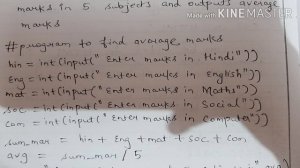 marks in 5 subjects and outputs average
marks
Made with KINEMASTER
#program to find average marks
hin = int(input(" Enter marks in Hindi"))
Eng = int(input(" Enter marks in English"))
mat = int(input(" Enter marks in Maths"))
soc = int(input(" Enter marks in Social"))
Com = int(input(" Enter marks in Computer"))
sum_mar = hin + Eng + mat + soc + Com
avg = sum_mar / 5